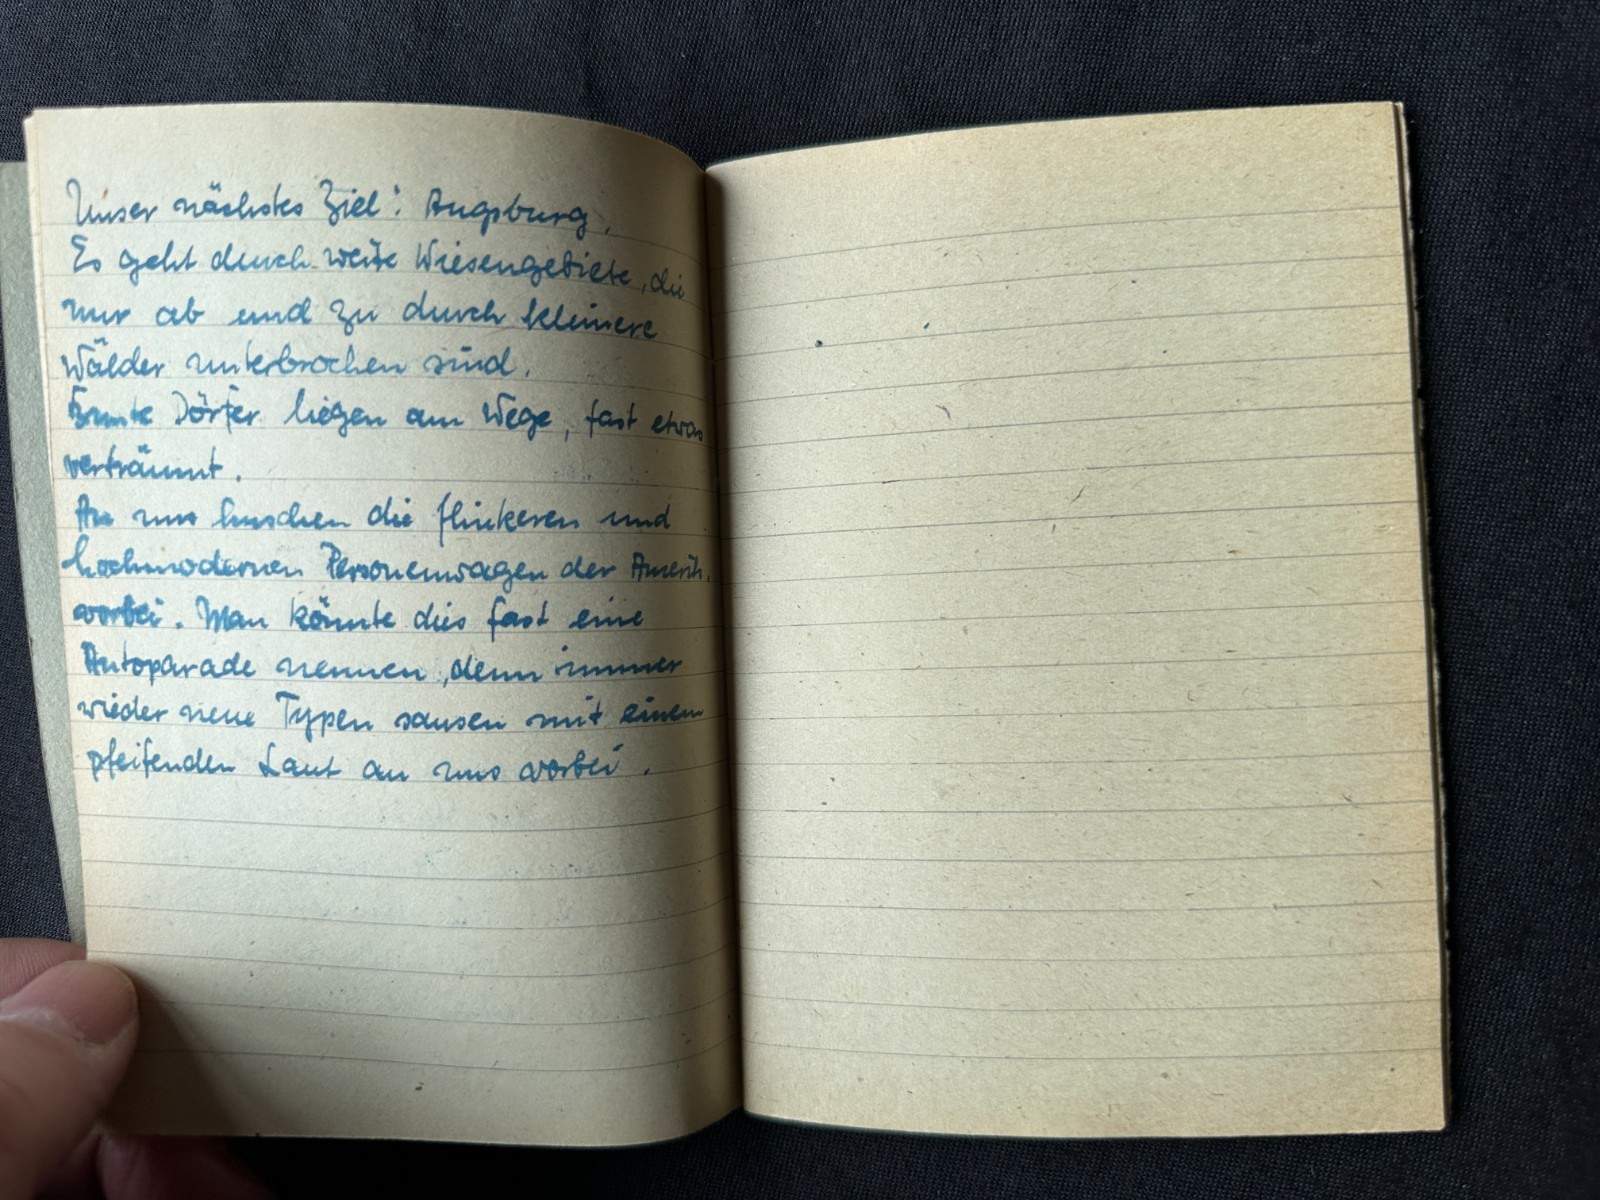 Unser nächstes Ziel: Augsburg.
Es geht durch weite Wiesengebiete, die
nur ab und zu durch kleinere
Wälder unterbrochen sind.
Bunte Dörfer liegen am Wege, fast etwas
verträumt.
An uns huschen die flinkeren und
hochmodernen Personenwagen der Amerik.
vorbei. Man könnte dies fast eine
Autoparade nennen, denn immer
wieder neue Typen sausen mit einem
pfeifenden Laut an uns vorbei.